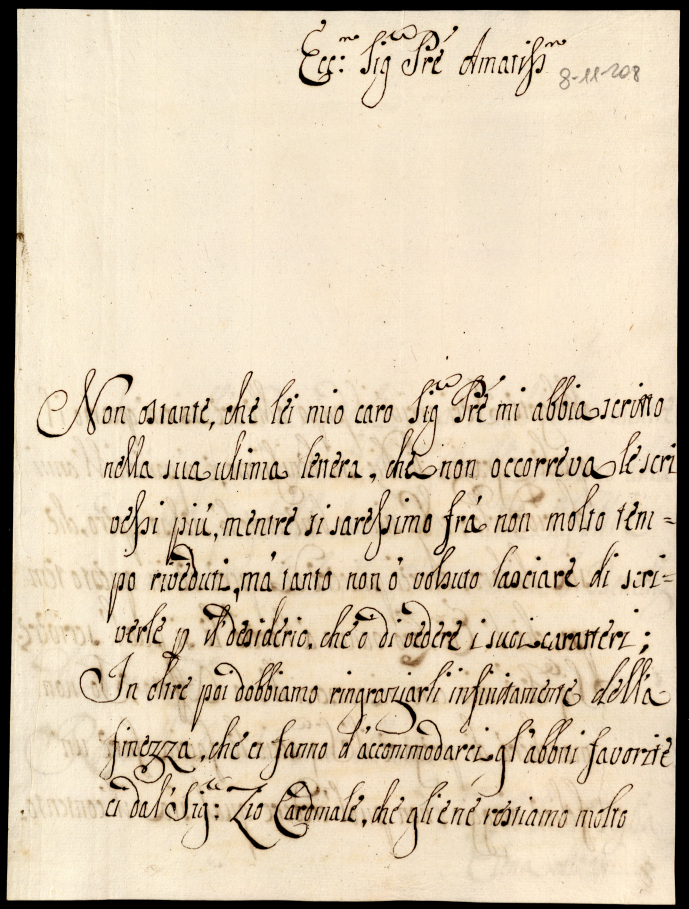 Ecc:mo Sigre Pre Amatissmo
8-11-208
Non ostante, che lei mio caro Sigre Pre mi abbia scritto
nella sua ultima lettera, che non occorreva le scri
vessi più, mentre si saressimo frà non molto tem=
po riveduti, mà tanto non ò volsuto lasciare di scri=
verle p il desiderio, che ò di vedere i suoi caratteri;
In oltre poi dobbiamo ringraziarli infinitamente della
finezza, che ci fanno d'accommodarci gl'abbiti favorite
ci dal' Sigre: Zio Cardinale, che gliene restiamo molto